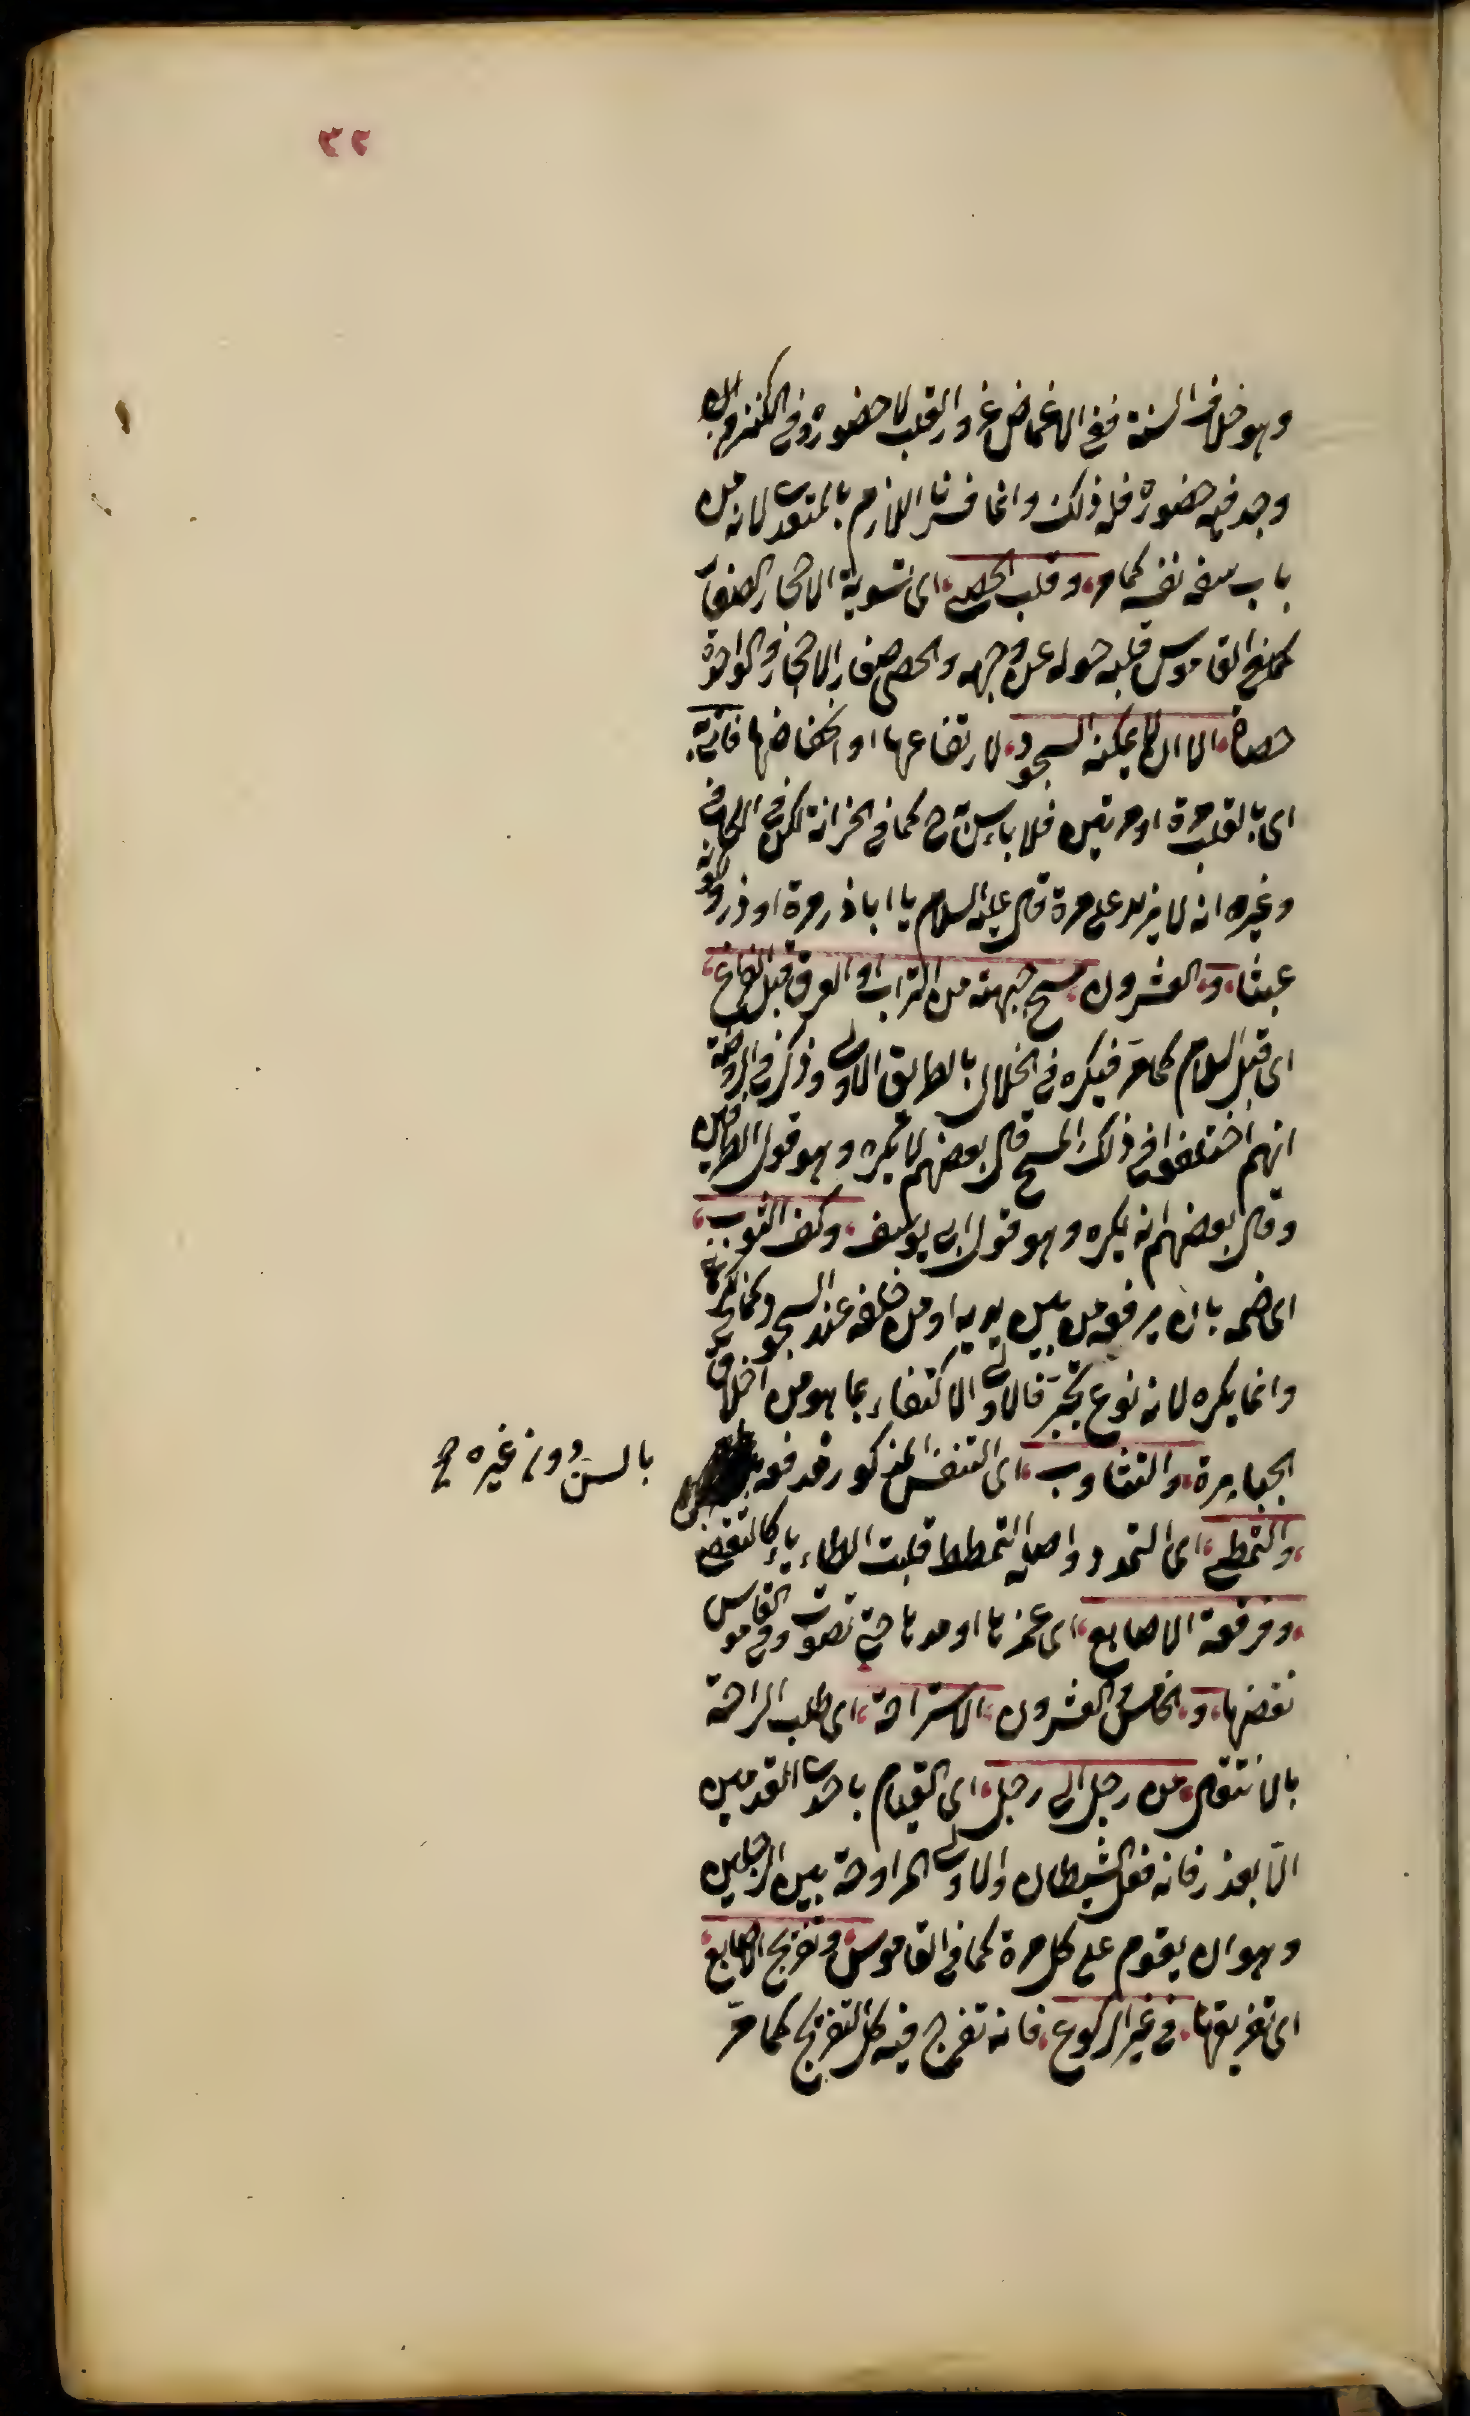 ٣٢
وهو خلاف السنة ففى الاغماض غرور القلب لا حضوره وفى الكنز وان
وجد فيه حضوره فله ذلك وانما فسرنا اللازم بالمتعدى لانه من
باب سفه نفسه كما مر وقلب الحصى اى تسوية الاحجار الصغار
كما فى القاموس قلبه حوله عن وجهه والحصى صغار الاحجار والواحدة
حصاة الا ان لا يمكنه السجود لارتفاعها او انخفاضها فانه
اى بالقلب مرة او مرتين فلا بأس ح كما فى الخزانة لكن فى الكافى
وغيره انه لا يزيد على مرة قال عليه السلام يا اباذر مرة او ذر وكونه
عبثا والعشرون مسح جبهته من التراب او العرق قبل الفراغ
اى قبل السلام كما مر فيكره فى الخلال بالطريق الاولى وذكر فى الروضة
انهم اختلفوا فى ذلك المسح قال بعضهم لا يكره وهو قول الطرفين
وقال بعضهم انه يكره وهو قول ابى يوسف وكف الثوب
اى ضمه بان يرفعه من بين يديه او من خلفه عند السجود كما
وانما يكره لانه نوع تجبر فالاولى الاكتفاء بما هو من اخلاق
الجبابرة والتثاوب اى التنفس المذكور فدفعه
بالسن دون غيره صح
والتمطى اى التمدد واصله التمطط قلبت الطاء ياء كالتقضى
وفرقعة الاصابع اى غمزها او مدها حتى تصوت وفى القاموس
نقضها والخامس والعشرون الاستراحة اى طلب الراحة
بالانتقال من رجل الى رجل اى القيام باحدى القدمين
الا بعذر فانه فعل الشيطان والاولى المراوحة بين الرجلين
وهو ان يقوم على كل مرة كما فى القاموس وتفريج الاصابع
اى تفريقها فى غير الركوع فانه تفرج فيه كل التفريج كما مر